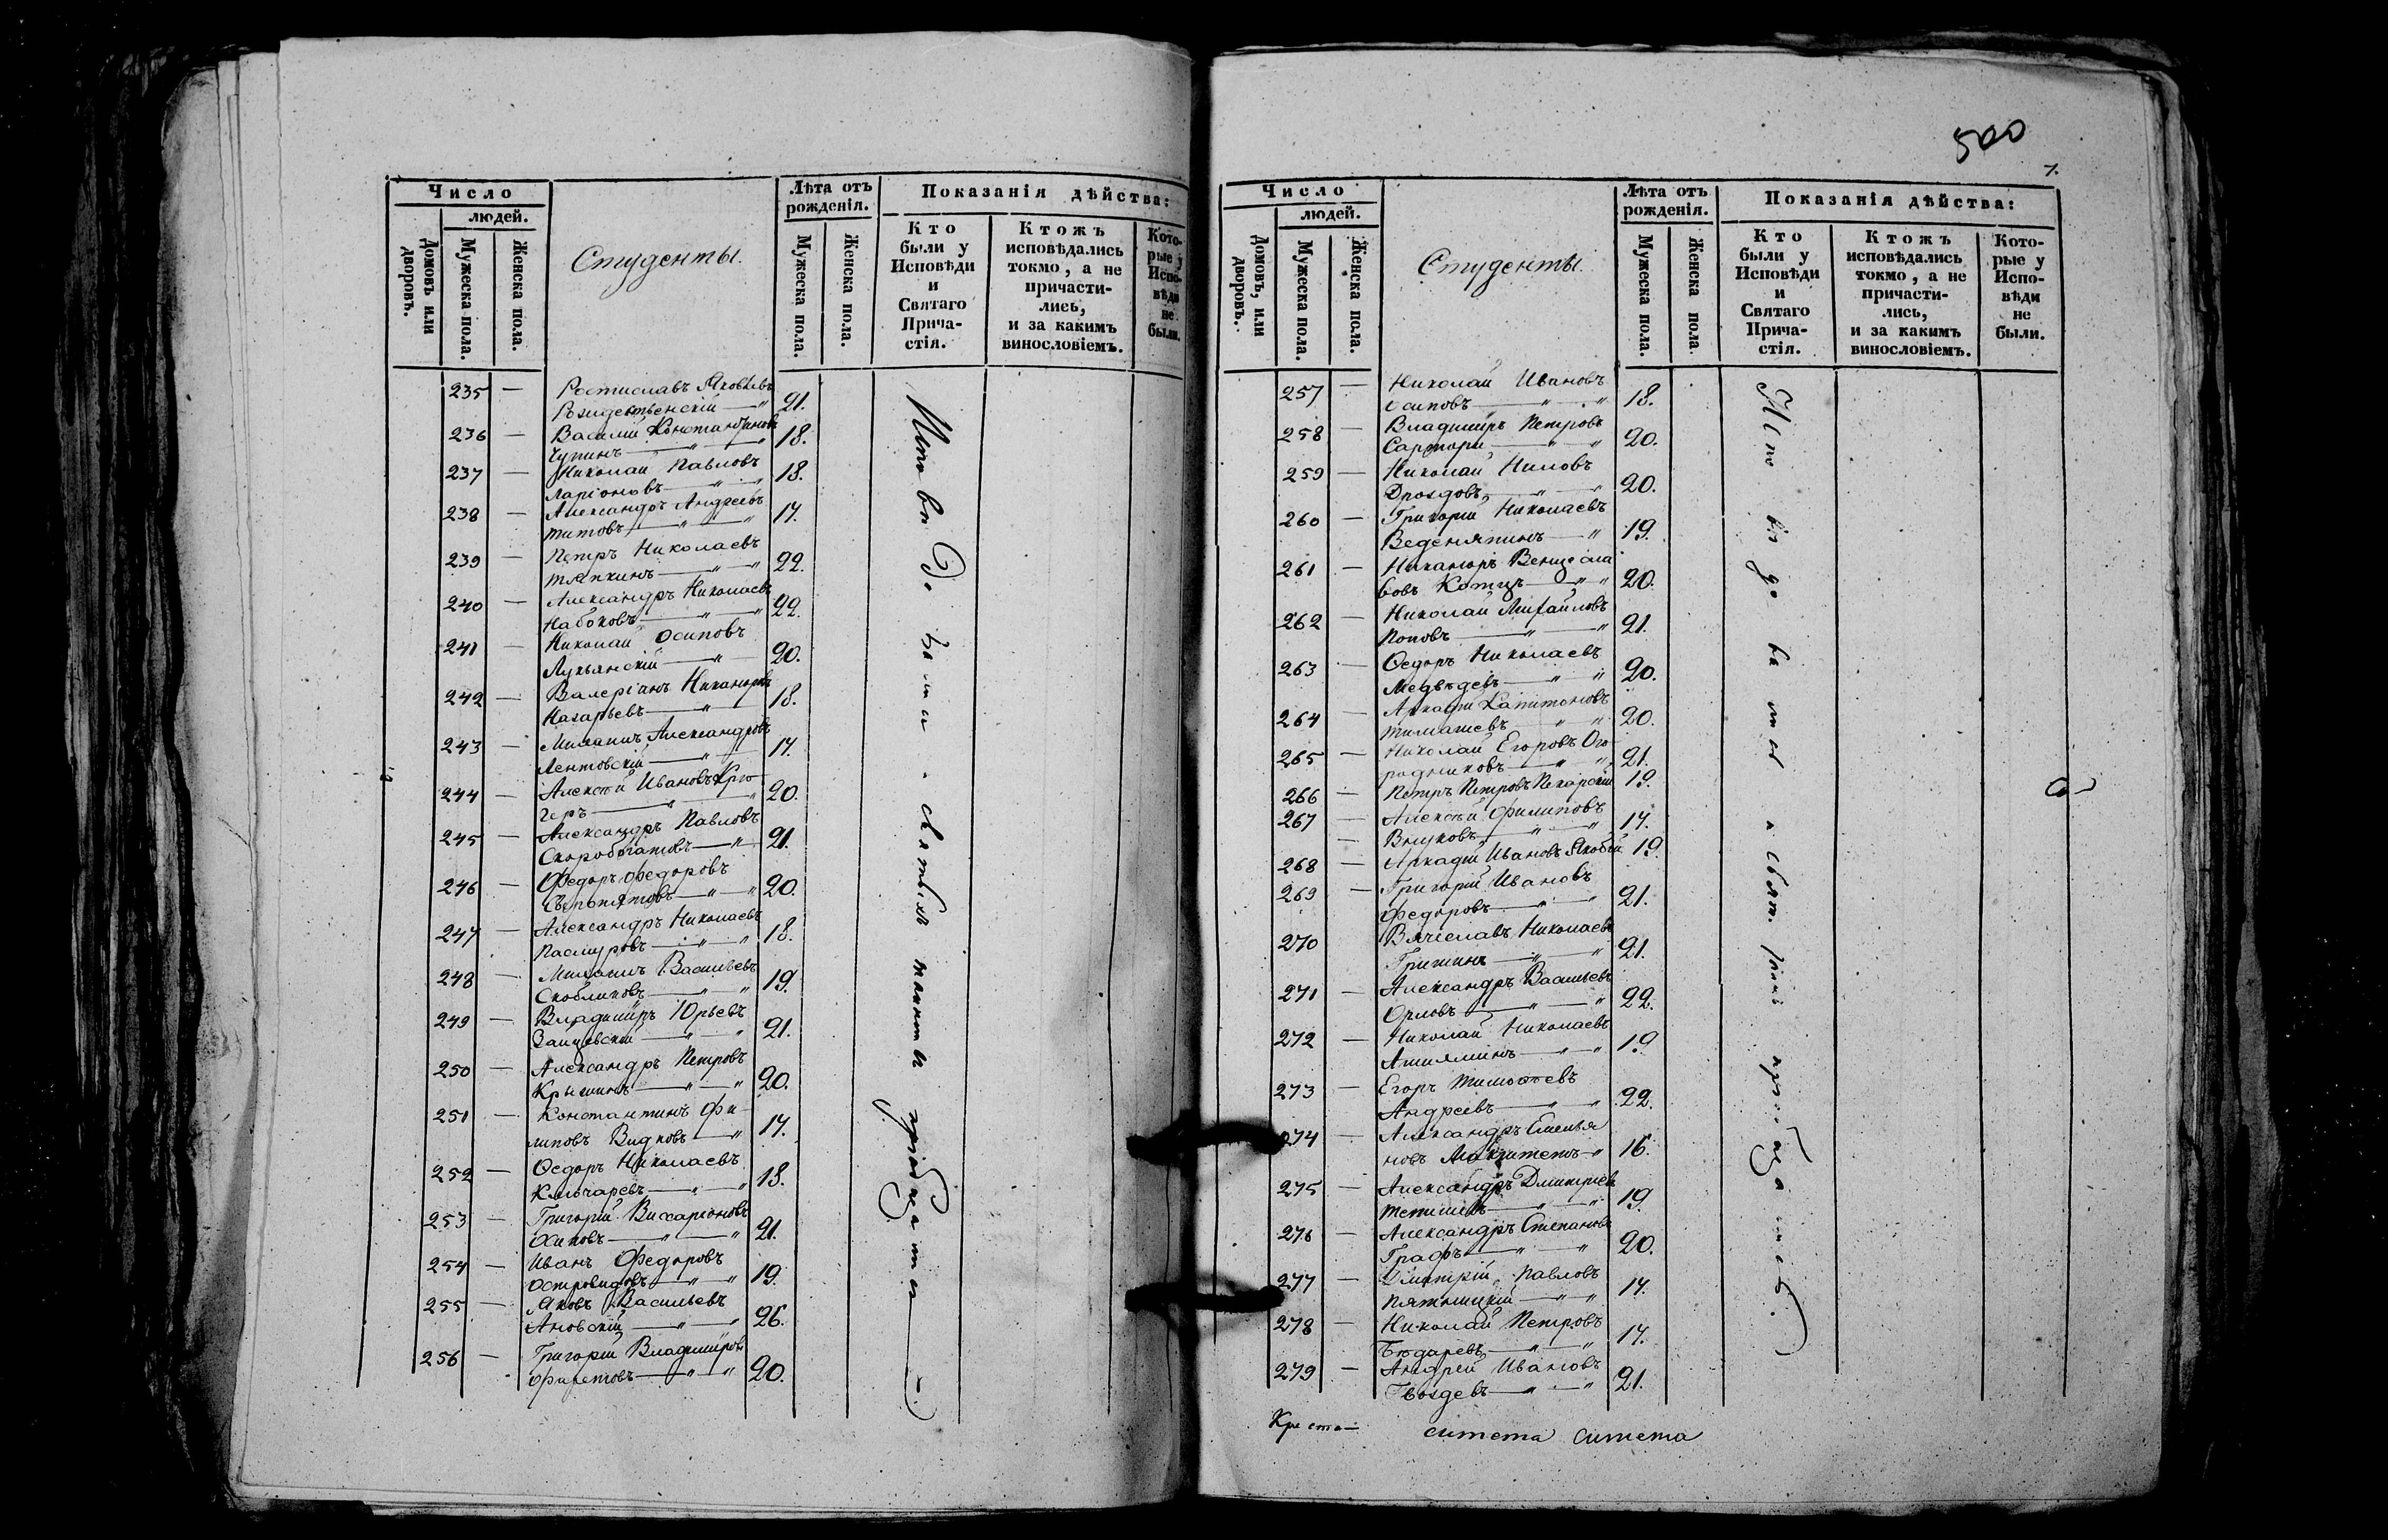 Число
людей.
Домовъ или дворовъ.
Мужеска пола.
Женска пола.
Студенты.
Лѣта отъ
рожденія.
Мужеска пола.
Женска пола.
Показанія дѣйства:
Кто
были у
Исповѣди
и
Святаго
Прича-
стія.
Ктожъ
исповѣдались
токмо, а не
причасти-
лись,
и за какимъ
винословіемъ.
Кото-
рые у
Испо-
вѣди
не
были.
235 — Ростиславъ Яковлевъ
Рождественскій — " 21.
236 — Василій Константиновъ
Чупинъ — " — " 18.
237 — Николай Павловъ
Ларіоновъ — " — " 18.
238 — Александръ Андреевъ
Титовъ — " — " 17.
239 — Петръ Николаевъ
Тяпкинъ — " — " 22.
240 — Александръ Николаевъ
Набоковъ — " — " 22.
241 — Николай Осиповъ
Лукьянскій — " — 20.
242 — Валеріанъ Никаноровъ
Назарьевъ — " — 18.
243 — Михаилъ Александровъ
Лентовскій — " — 17.
244 — Алексѣй Ивановъ Крю-
геръ — " — " 20.
245 — Александръ Павловъ
Скоробогатовъ — " — 21.
246 — Федоръ Федоровъ
— " — " 20.
247 — Александръ Николаевъ
Пасмуровъ — " — " 18.
248 — Михаилъ Васильевъ
Скобликовъ — " — " 19.
249 — Владиміръ Юрьевъ
— " — " 21.
250 — Александръ Петровъ
Крылинъ — " — " 20.
251 — Константинъ Фи-
липовъ Видковъ — " 17.
252 — Ѳедоръ Николаевъ
Ключаревъ — " — " 18.
253 — Григорій Виссаріоновъ
Осиповъ — " — " 21.
254 — Иванъ Федоровъ
Островидовъ — " — " 19.
255 — Яковъ Васильевъ
Яновскій — " — " 26.
256 — Григорій Владиміровъ
— " — " 20.
500
Число
людей.
Домовъ, или дворовъ.
Мужеска пола.
Женска пола.
Студенты.
Лѣта отъ
рожденія.
Мужеска пола.
Женска пола.
Показанія дѣйства:
Кто
были у
Исповѣди
и
Святаго
Прича-
стія.
Ктожъ
исповѣдались
токмо, а не
причасти-
лись,
и за какимъ
винословіемъ.
Кото-
рые у
Испо-
вѣди
не
были.
257 — Николай Ивановъ
Осиповъ — " — " 18.
258 — Владиміръ Петровъ
Сартори — " — " 20.
259 — Николай Ниловъ
Дроздовъ — " — " 20.
260 — Григорій Николаевъ
Веденяпинъ — " 19.
261 — Никаноръ Венцесла
вовъ Котцъ — " — " 20.
262 — Николай Михайловъ
Поповъ — " — " 21.
263 — Ѳедоръ Николаевъ
Медвѣдевъ — " — " 20.
264 — Аркадій Капитоновъ
Тимашевъ — " — " 20.
265 — Николай Егоровъ Ого
родниковъ — " — " 21.
266 — Петръ Петровъ Пекарскій 19.
267 — Алексѣй Филиповъ
Внуковъ — " — " 17.
268 — Аркадій Ивановъ Якобій 19.
269 — Григорій Ивановъ
Федоровъ — " — " 21.
270 Вячеславъ Николаевъ
Гришинъ — " — " 21.
271 — Александръ Васильевъ
Орловъ — " — " 22.
272 — Николай Николаевъ
— " — " 19
273 — Егоръ Тимоѳеевъ
Андреевъ — " — " 22.
274 — Александръ Емелья
новъ — " 16.
275 — Александръ Дмитріевъ
— " — " 19
276 — Александръ Степановъ
Графъ — " — " 20.
277 — Дмитрій Павловъ
Пятницкій — " — " 17.
278 — Николай Петровъ
— " — " 17.
279 — Андрей Ивановъ
Гвоздевъ — " — " 21.